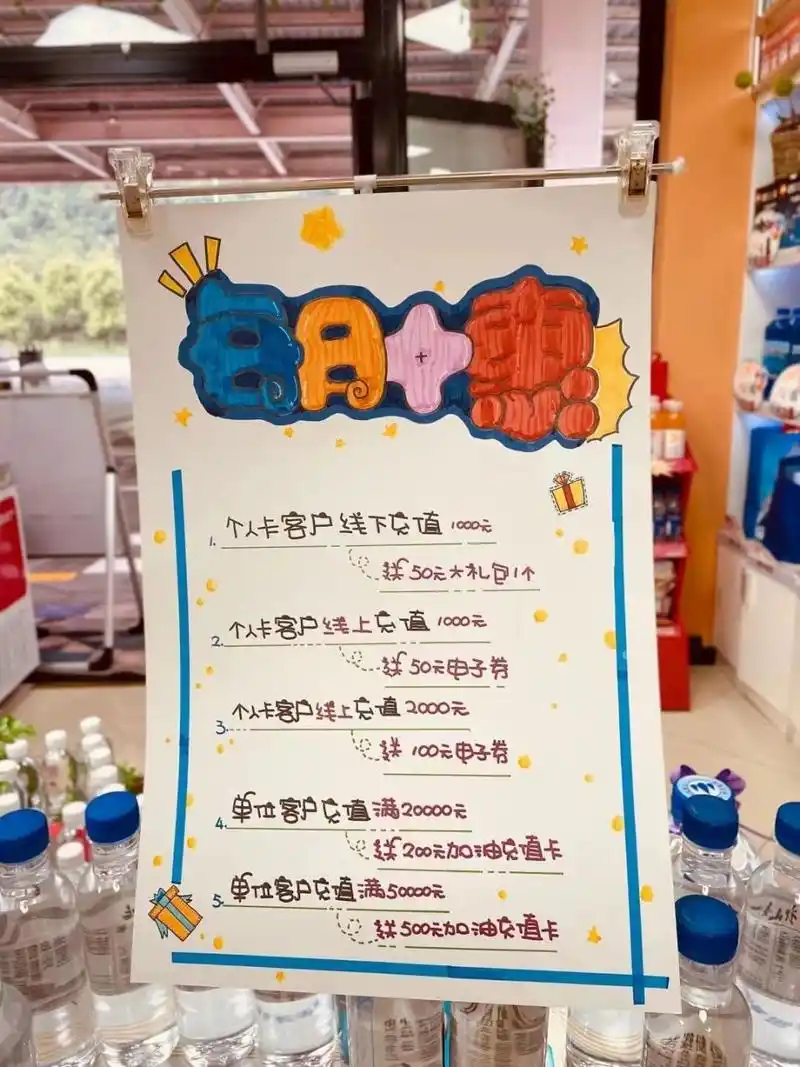 每月十惠
1. 个人卡客户线下充值1000元
送50元大礼包1个
2. 个人卡客户线上充值1000元
送50元电子券
3. 个人卡客户线上充值2000元
送100元电子券
4. 单位客户充值满20000元
送200元加油充值卡
5. 单位客户充值满50000元
送500元加油充值卡